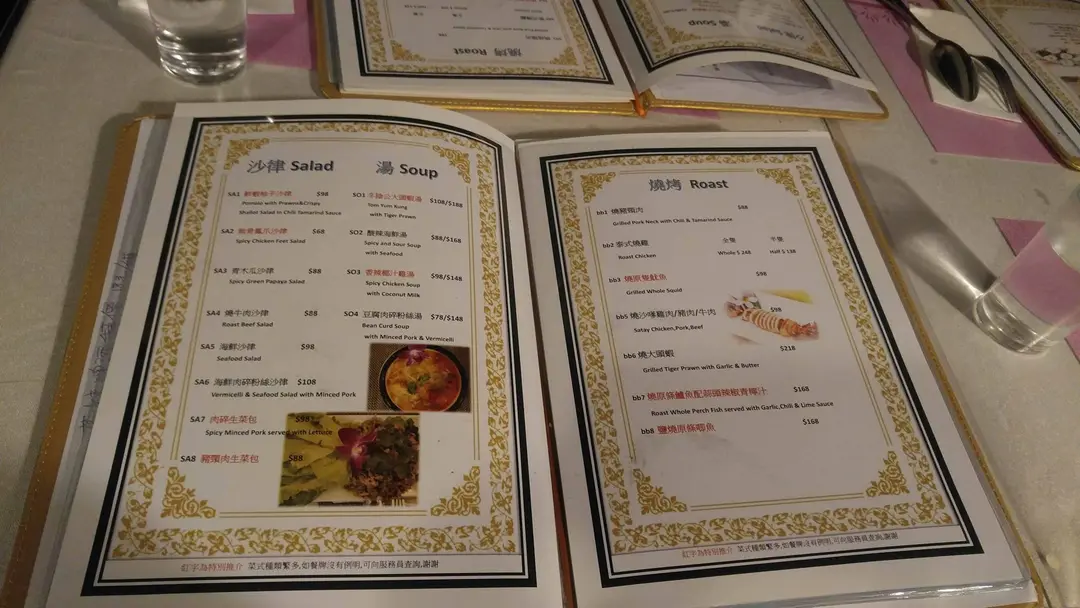 沙律 Salad
SA1 鮮蝦柚子沙律 $98
Pomelo with Prawns&Crisps
Shallot Salad in Chili Tamarind Sauce
SA2 無骨鳳爪沙律 $68
Spicy Chicken Feet Salad
SA3 青木瓜沙律 $88
Spicy Green Papaya Salad
SA4 燒牛肉沙律 $88
Roast Beef Salad
SA5 海鮮沙律 $98
Seafood Salad
SA6 海鮮肉碎粉絲沙律 $108
Vermicelli & Seafood Salad with Minced Pork
SA7 肉碎生菜包 $98
Spicy Minced Pork served with Lettuce
SA8 豬頸肉生菜包 $88
湯 Soup
SO1 冬蔭公大頭蝦湯 $108/$188
Tom Yum Kung
with Tiger Prawn
SO2 酸辣海鮮湯 $88/$168
Spicy and Sour Soup
with Seafood
SO3 香辣椰汁雞湯 $98/$148
Spicy Chicken Soup
with Coconut Milk
SO4 豆腐肉碎粉絲湯 $78/$148
Bean Curd Soup
with Minced Pork & Vermicelli
紅字為特別推介 菜式種類繁多,如餐牌沒有例明,可向服務員查詢,謝謝
燒烤 Roast
bb1 燒豬頸肉 $88
Grilled Pork Neck with Chili & Tamarind Sauce
bb2 泰式燒雞 全隻 半隻
Roast Chicken Whole $ 248 Half $ 138
bb3 燒原隻魷魚 $98
Grilled Whole Squid
bb5 燒沙嗲雞肉/豬肉/牛肉 $98
Satay Chicken,Pork,Beef
bb6 燒大頭蝦 $218
Grilled Tiger Prawn with Garlic & Butter
bb7 燒原條鱸魚配蒜頭辣椒青檸汁 $168
Roast Whole Perch Fish served with Garlic,Chili & Lime Sauce
bb8 鹽燒原條唧魚 $168
紅字為特別推介 菜式種類繁多,如餐牌沒有例明,可向服務員查詢,謝謝
燒烤 Roast
湯 Soup